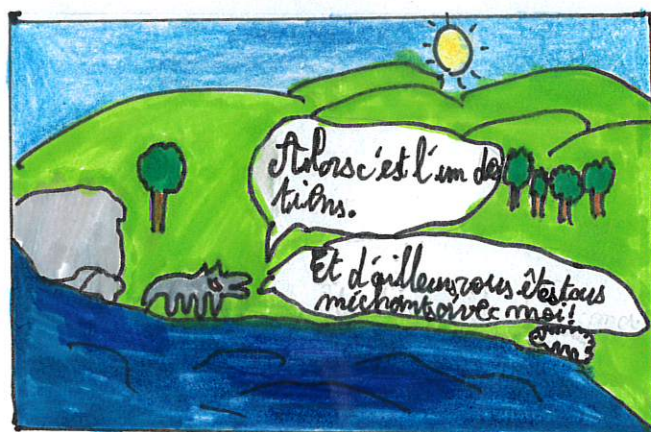 Alors c'est l'un des
tiens.
Et d'ailleurs vous êtes tous
méchants avec moi!